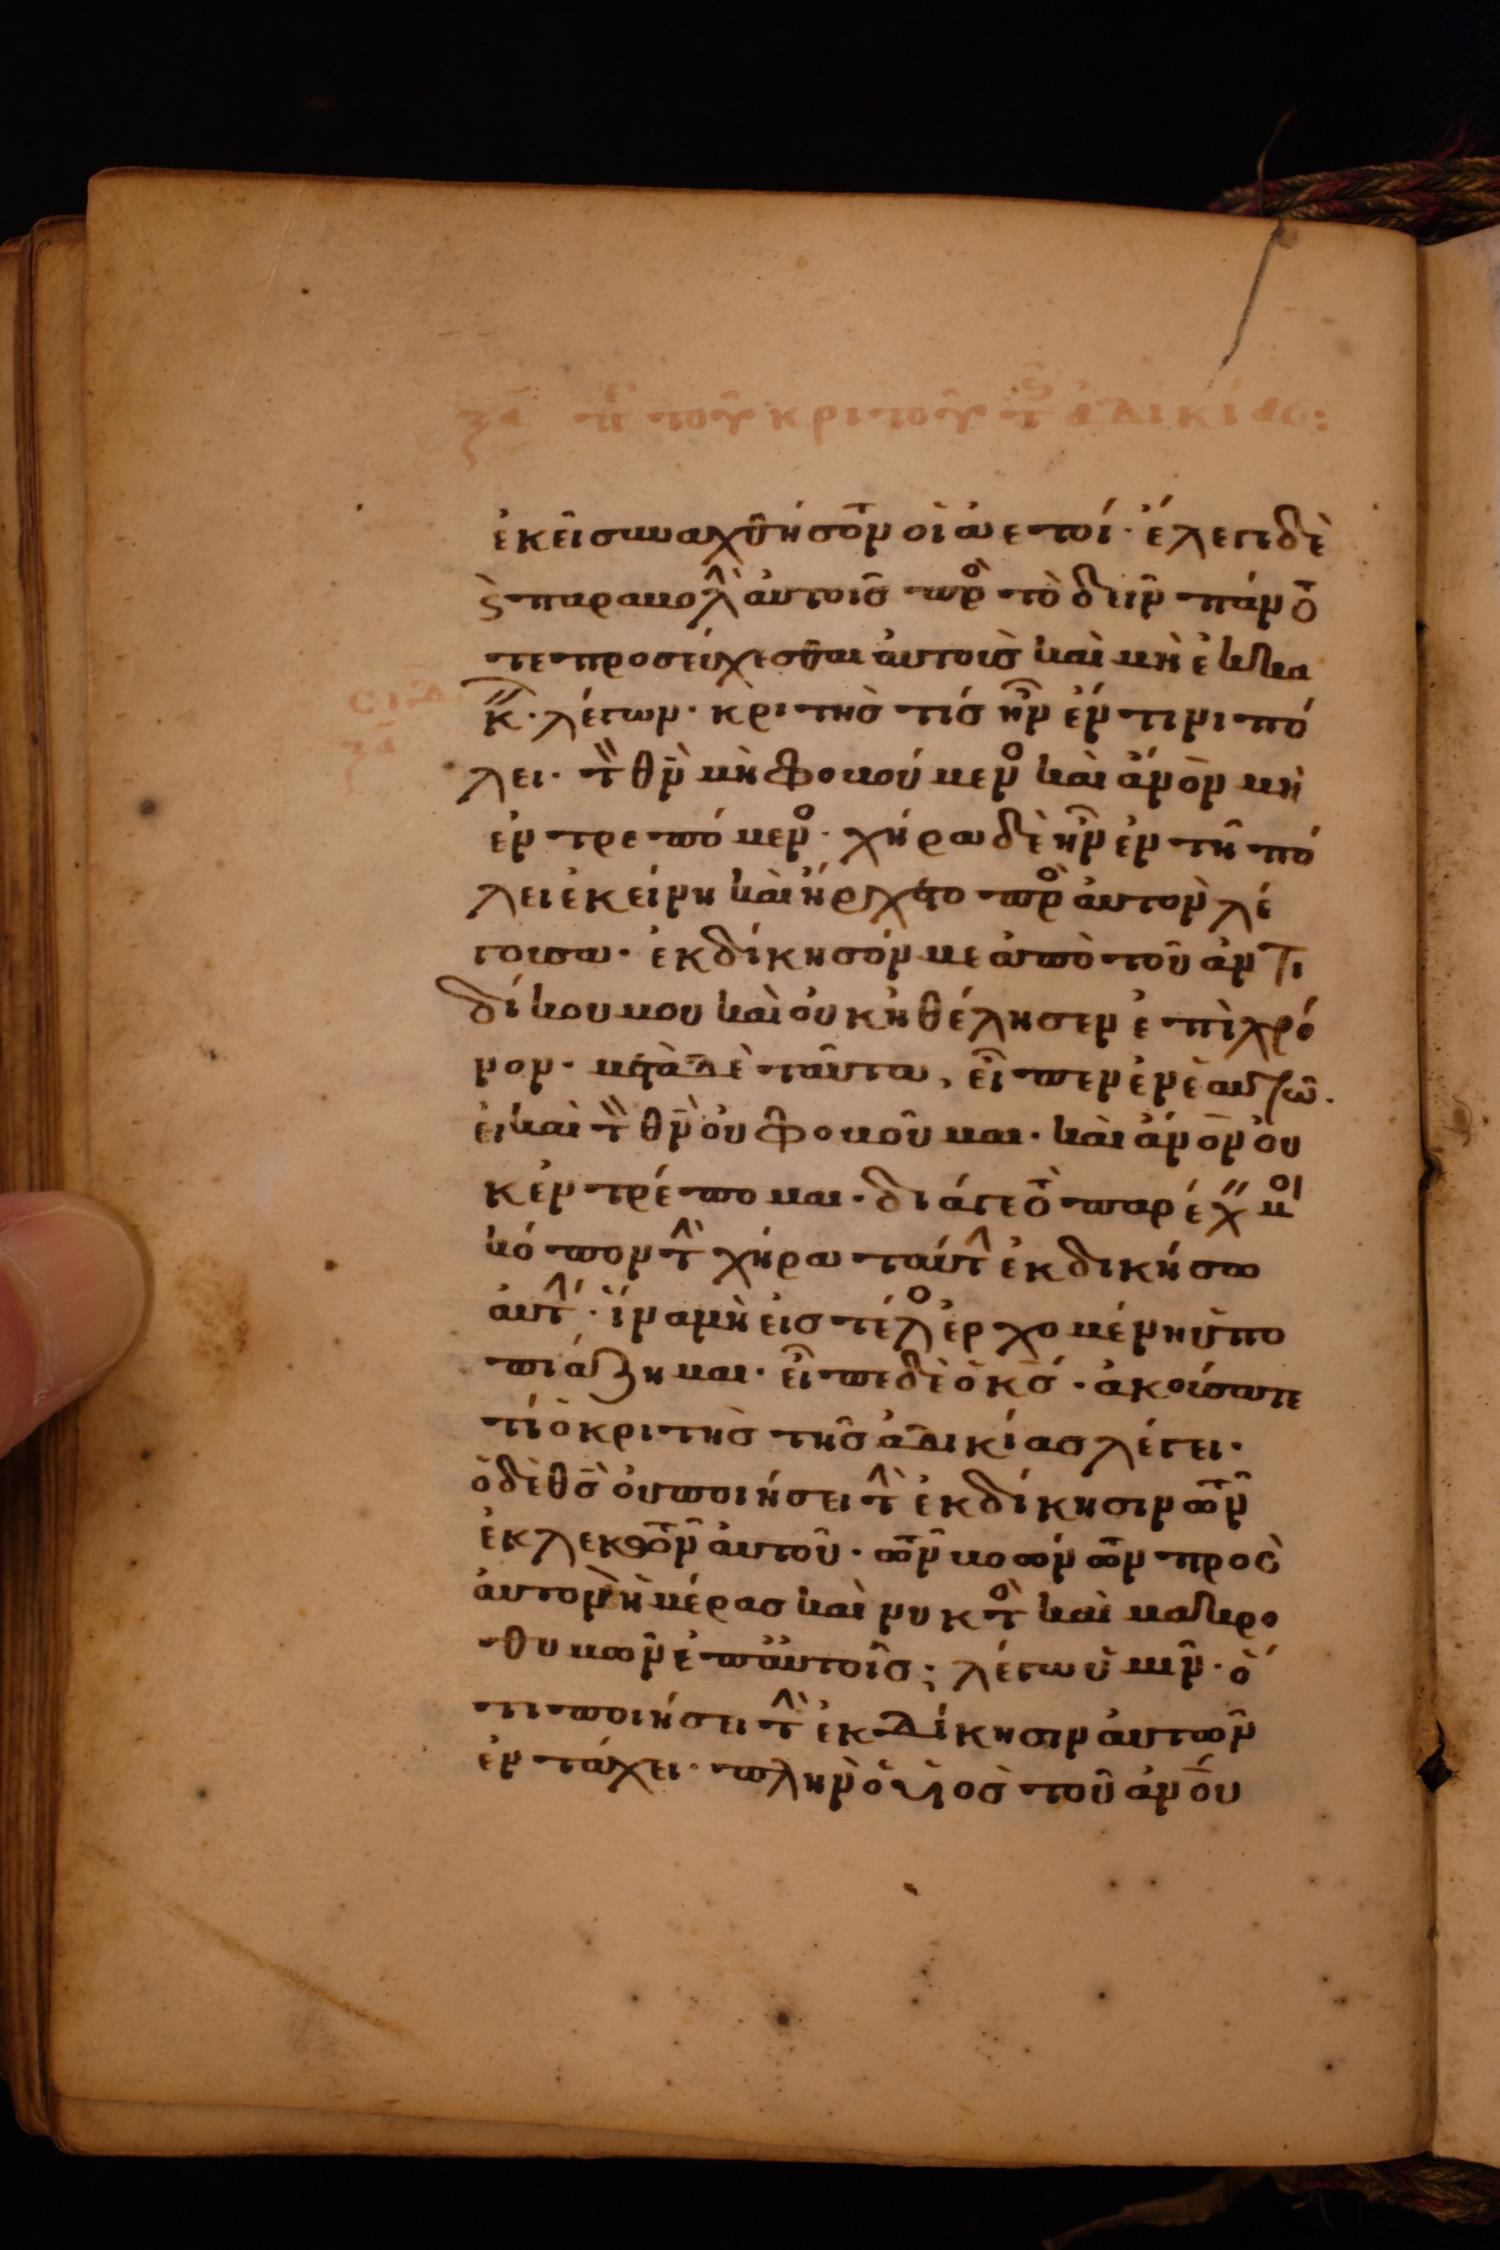 ξα πε του κριτου της αδικιας:
ἐκεῖ συναχθήσονται οἱ ἀετοί· ἔλεγε δὲ
καὶ παραβολὴν αὐτοῖς πρὸς τὸ δεῖν πάντο
τε προσεύχεσθαι αὐτοὺς καὶ μὴ ἐκκα
κεῖν· λέγων· κριτὴς τίς ἦν ἔν τινι πό
λει· τὸν θν μὴ φοβούμενος καὶ ἄνον μὴ
ἐντρεπόμενος· χήρα δὲ ἦν ἐν τῆ πό
λει ἐκείνη καὶ ἤρχετο πρὸς αὐτὸν λέ
γουσα· ἐκδίκησόν με ἀπὸ τοῦ ἀντι
δίκου μου καὶ οὐκ ἠθέλησεν ἐπὶ χρό
νον· μετὰ δὲ ταῦτα, εἶπεν ἐν ἑαυτῶ·
εἰ καὶ τὸν θν οὐ φοβοῦμαι· καὶ ἄνον οὐ
κ ἐντρέπομαι· διά γε τὸ παρέχειν μοι
κόπον τὴν χήραν ταύτην ἐκδικήσω
αὐτήν· ἵνα μὴ εἰς τέλος ἐρχομένη ὑπο
πιάζη με· εἶπε δὲ ὁ κς· ἀκούσατε
τί ὁ κριτὴς τῆς ἀδικίας λέγει·
ὁ δὲ θς οὐ ποιήσει τὴν ἐκδίκησιν τῶν
ἐκλεκτῶν αὐτοῦ· τῶν βοώντων πρὸς
αὐτὸν ἡμέρας καὶ νυκτὸς καὶ μακρο
θυμῶν ἐπ αὐτοῖς; λέγω ὑμῖν· ὅ
τι ποιήσει τὴν ἐκδίκησιν αὐτῶν
ἐν τάχει· πλὴν ὁ υἱὸς τοῦ ἀνου